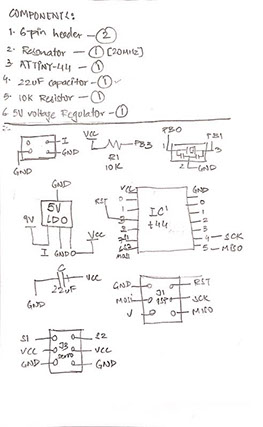 COMPONENTS:
1. 6-pin header - 2
2. Resonator - 1 [20MHZ]
3 ATTINY-44 - 1
4. 22uF capacitor - 1
5. 10K Resistor - 1
6. 5V voltage Regulator - 1
I
GND
GND
VCC
R1
10K
PB3
PB0
PB1
1
3
2
GND
GND
5V
LDO
9V
I
GND
VCC
VCC
GND
RST
IC1
t44
0
0
1
1
2
2
3
3
4
SCK
5
MISO
MOSI
C
VCC
22uF
GND
GND
RST
MOSI
J1
ISP
SCK
V
MISO
S1
S2
VCC
J3
servo
VCC
GND
GND